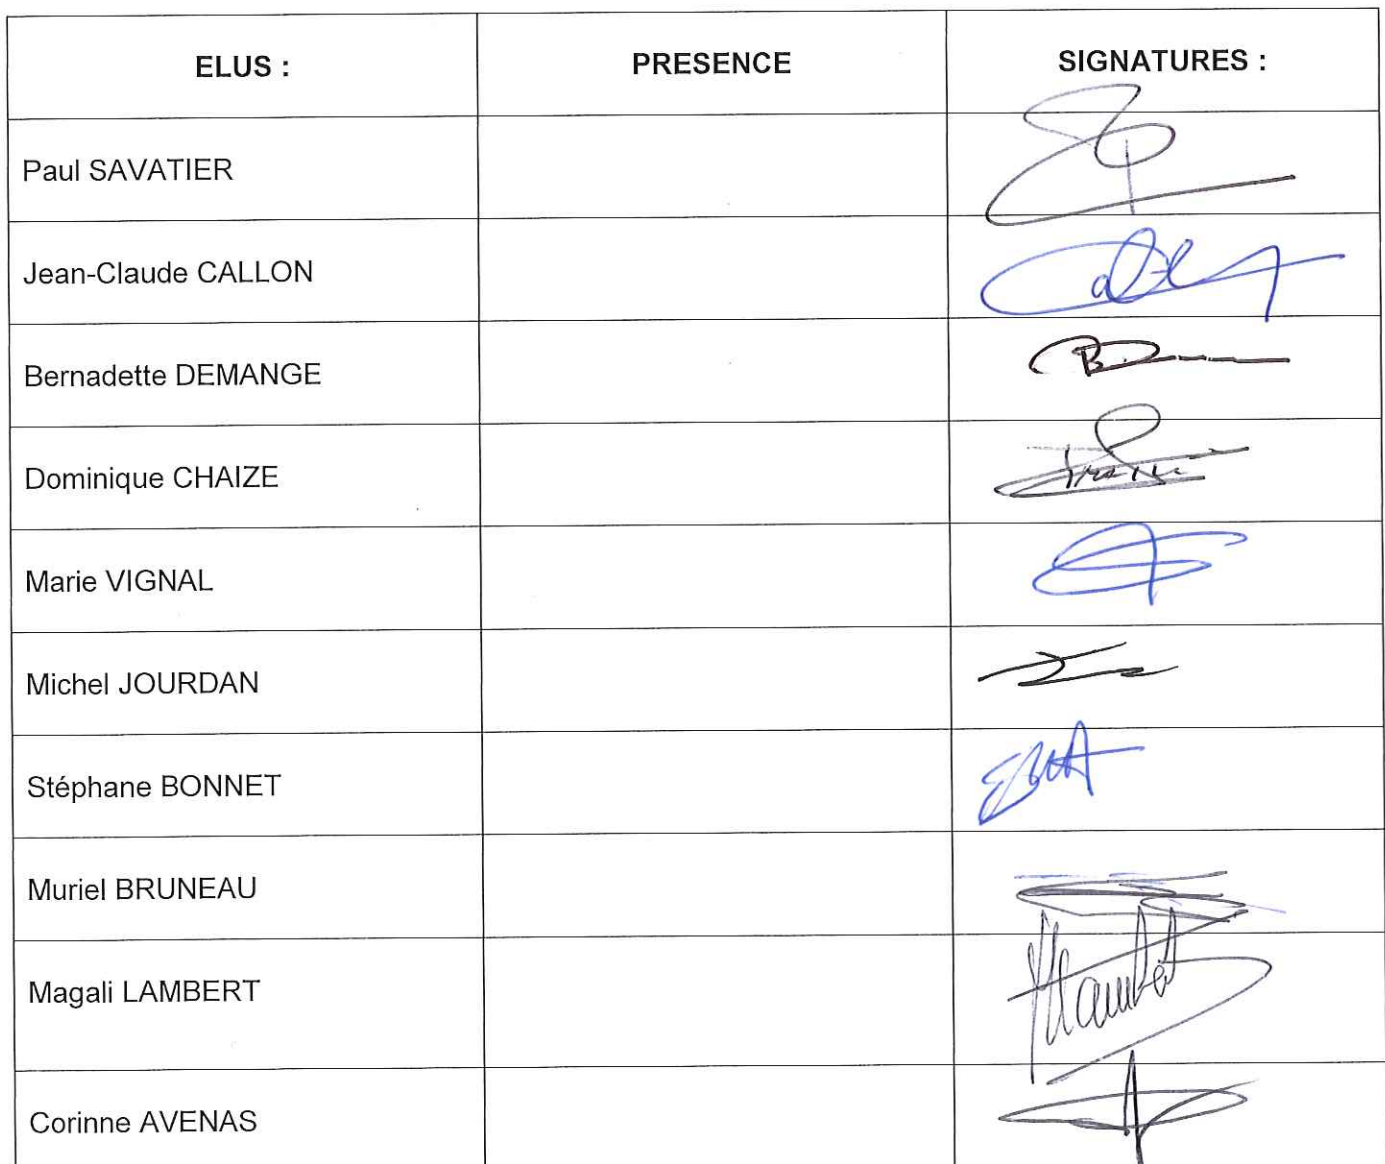 ELUS : PRESENCE SIGNATURES :
Paul SAVATIER
Jean-Claude CALLON
Bernadette DEMANGE
Dominique CHAIZE
Marie VIGNAL
Michel JOURDAN
Stéphane BONNET
Muriel BRUNEAU
Magali LAMBERT
Corinne AVENAS